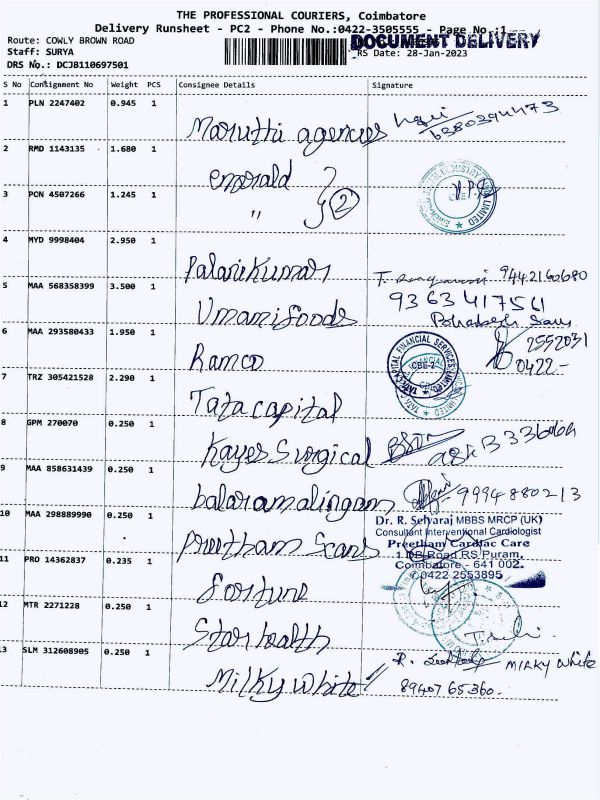 THE PROFESSIONAL COURIERS, Coimbatore
Delivery Runsheet - PC2 - Phone No.:0422-3505555 - Page No.:1
Route: COWLY BROWN ROAD
DOCUMENT DELIVERY
Staff: SURYA
RS Date: 28-Jan-2023
DRS No.: DCJB110697501
S No Consignment No Weight PCS Consignee Details Signature
1 PLN 2247402 0.945 1
Maruthi agencies
2 RMD 1143135 1.680 1
emerald
3 PON 4507266 1.245 1
" 2
4 MYD 9998404 2.950 1
Palanikumar 9442160680
5 MAA 568358399 3.500 1
Umamifoods 9363417541
6 MAA 293580433 1.950 1
Ramco 2552031
0422-
TATA CAPITAL FINANCIAL SERVICES LIMITED
CBE-2
7 TRZ 305421528 2.290 1
Tata capital
8 GPM 270070 0.250 1
Kayes Surgical
9 MAA 858631439 0.250 1
balaramalingam 9994880213
10 MAA 298889990 0.250 1
Preetham Scans
Dr. R. Selvaraj MBBS MRCP (UK)
Consultant Interventional Cardiologist
Preetham Cardiac Care
1 DB Road RS Puram,
Coimbatore - 641 002.
0422 2553895
11 PRO 14362837 0.235 1
fortune
12 MTR 2271228 0.250 1
Star health
13 SLM 312608905 0.250 1
Milky white
MILKY White
8940765360